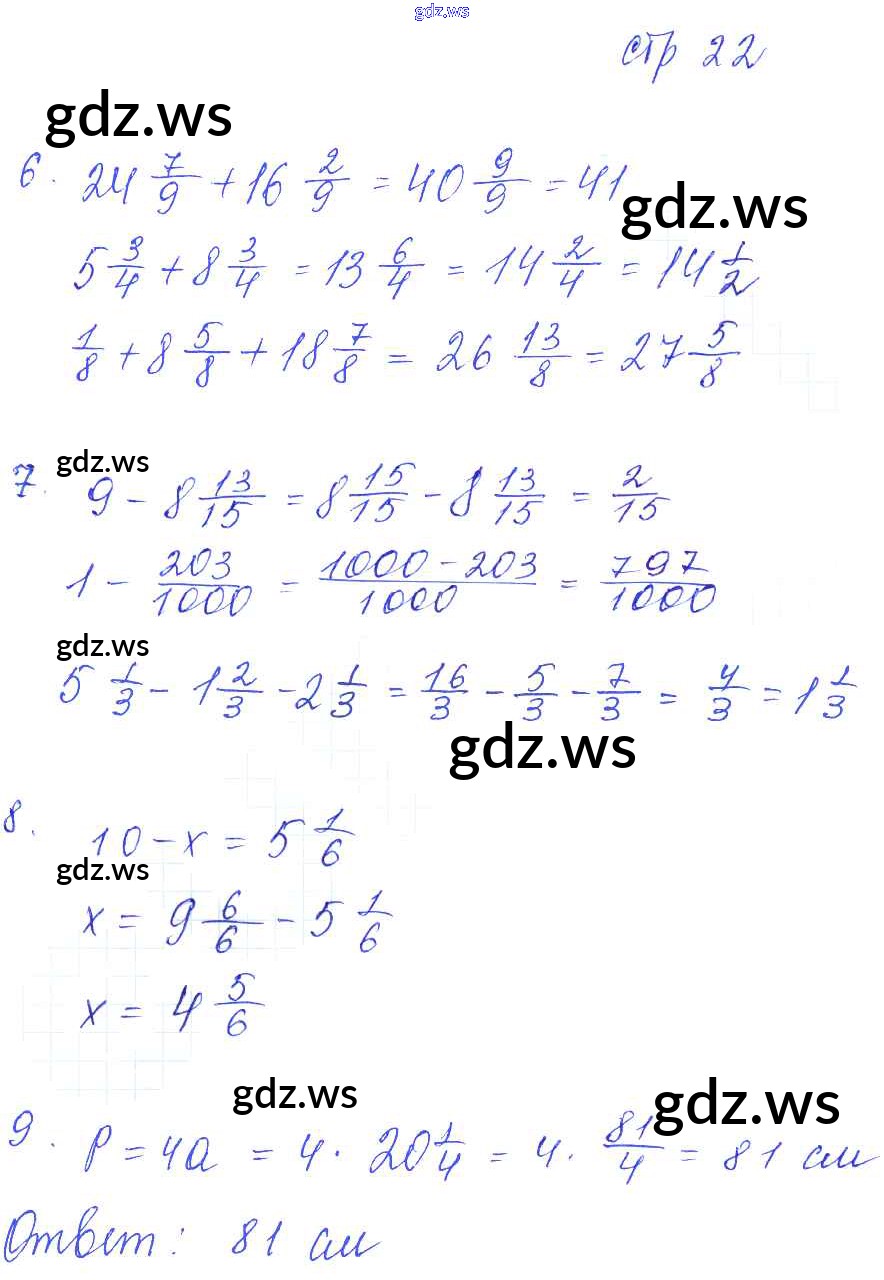 gdz.ws
стр 22
gdz.ws
6. 24 7/9 + 16 2/9 = 40 9/9 = 41
gdz.ws
5 3/4 + 8 3/4 = 13 6/4 = 14 2/4 = 14 1/2
1/8 + 8 5/8 + 18 7/8 = 26 13/8 = 27 5/8
gdz.ws
7. 9 - 8 13/15 = 8 15/15 - 8 13/15 = 2/15
1 - 203/1000 = 1000 - 203/1000 = 797/1000
gdz.ws
5 1/3 - 1 2/3 - 2 1/3 = 16/3 - 5/3 - 7/3 = 4/3 = 1 1/3
gdz.ws
8. 10 - x = 5 1/6
gdz.ws
x = 9 6/6 - 5 1/6
x = 4 5/6
gdz.ws
gdz.ws
9. P = 4a = 4 · 20 1/4 = 4 · 81/4 = 81 см
Ответ: 81 см